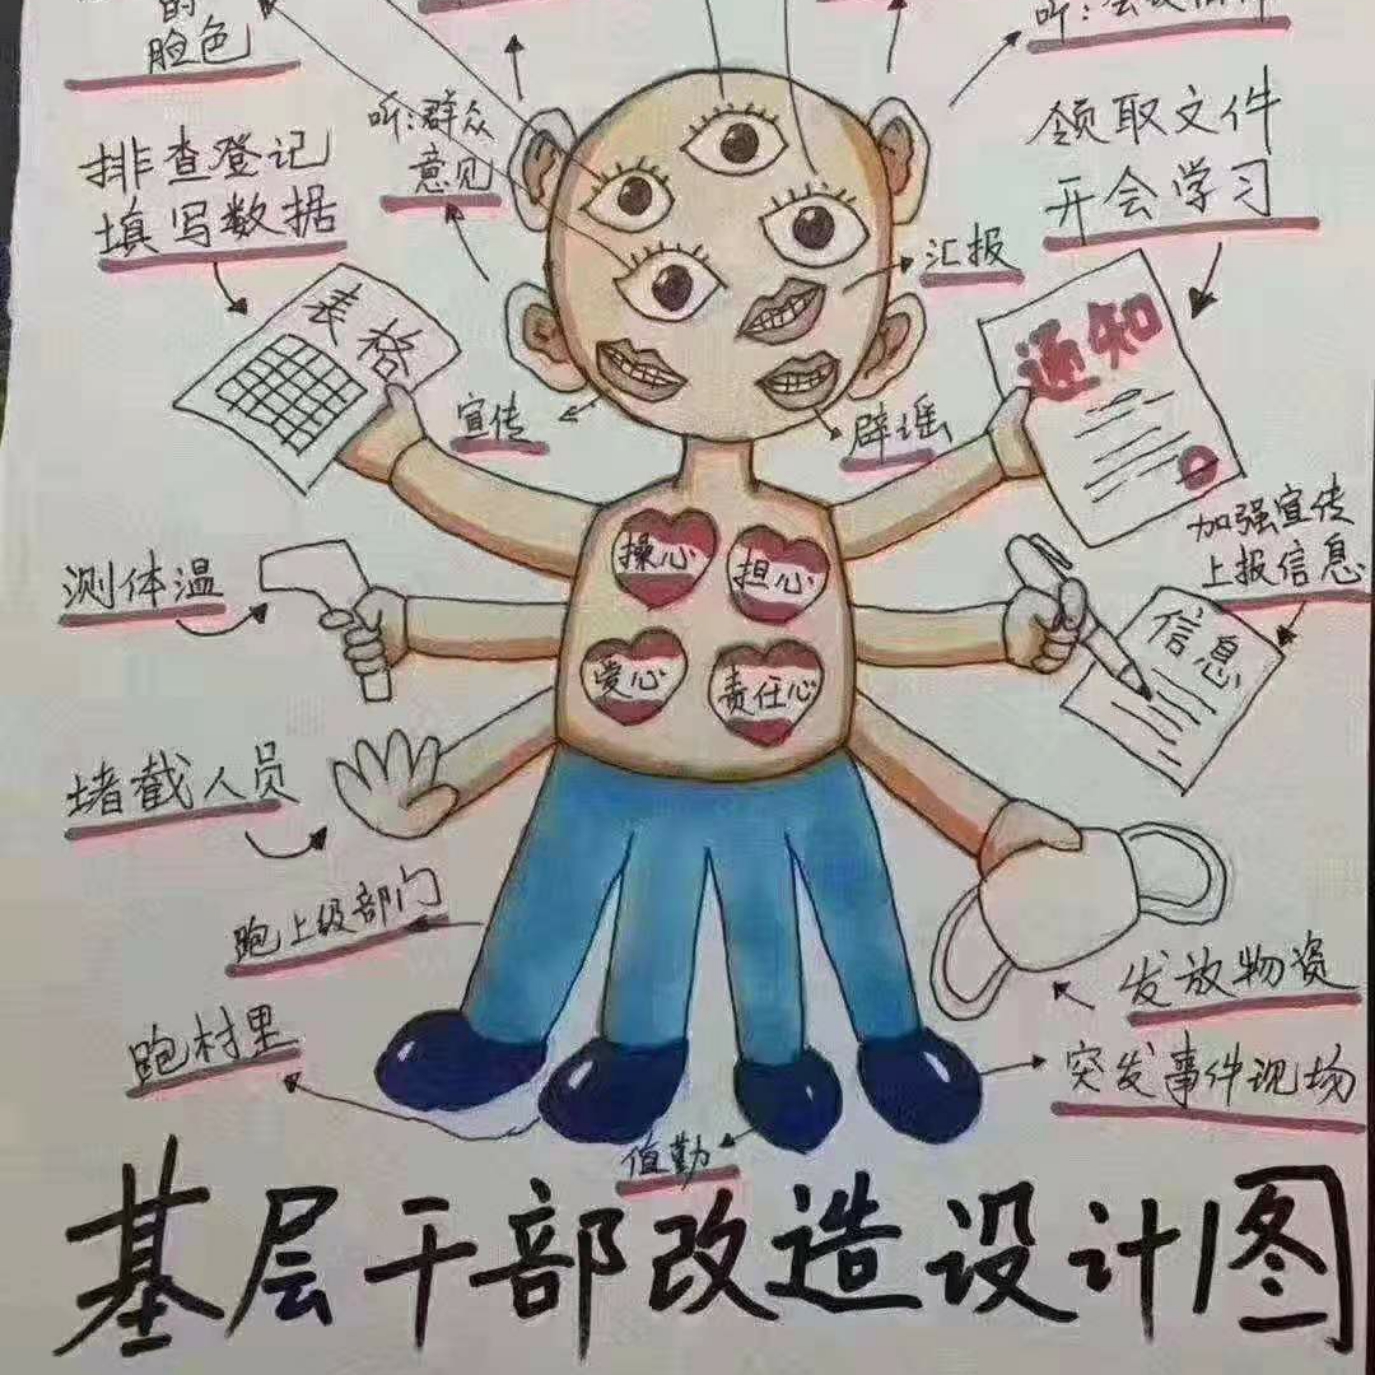 的
脸色
听:群众
意见
排查登记
填写数据
领取文件
开会学习
汇报
表格
通知
宣传
辟谣
加强宣传
上报信息
操心
担心
测体温
信息
爱心
责任心
堵截人员
跑上级部门
发放物资
跑村里
突发事件现场
值勤
基层干部改造设计图